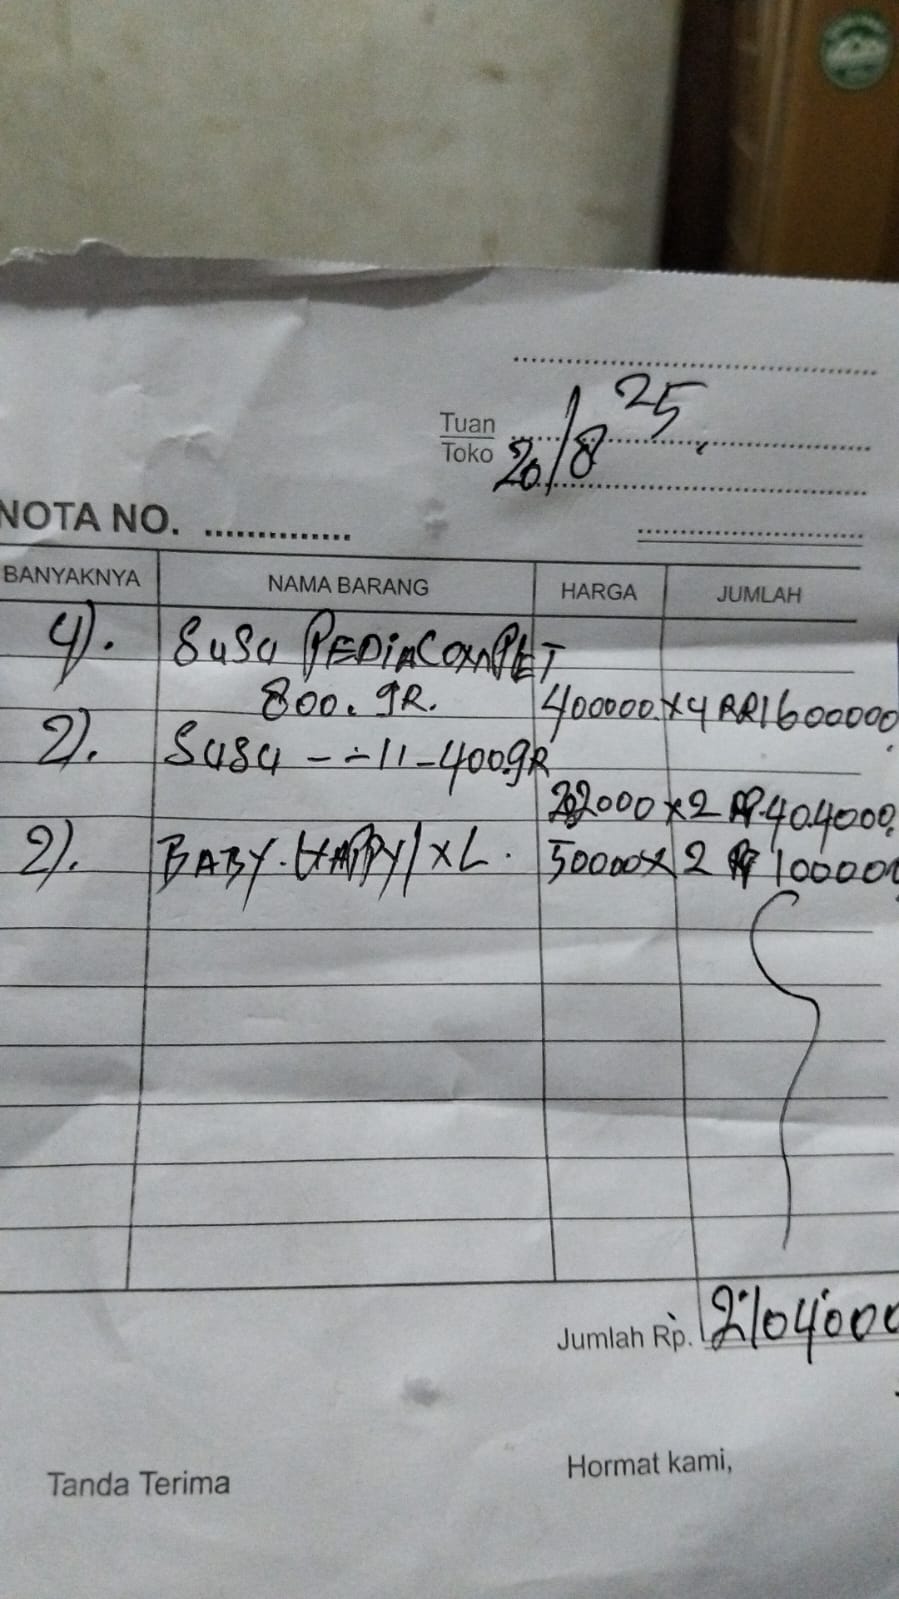 25.
Tuan
Toko
20/8
NOTA NO. ..............
BANYAKNYA NAMA BARANG HARGA JUMLAH
4). SUSU PEDIACOMPLET
800.gR. 400000.x4 1600000
2). SUSU -÷11-400gR
202000x2 404000.
2). BABY.HAPPY/XL. 50000x2 100000
Jumlah Rp. 2.104.000
Tanda Terima Hormat kami,